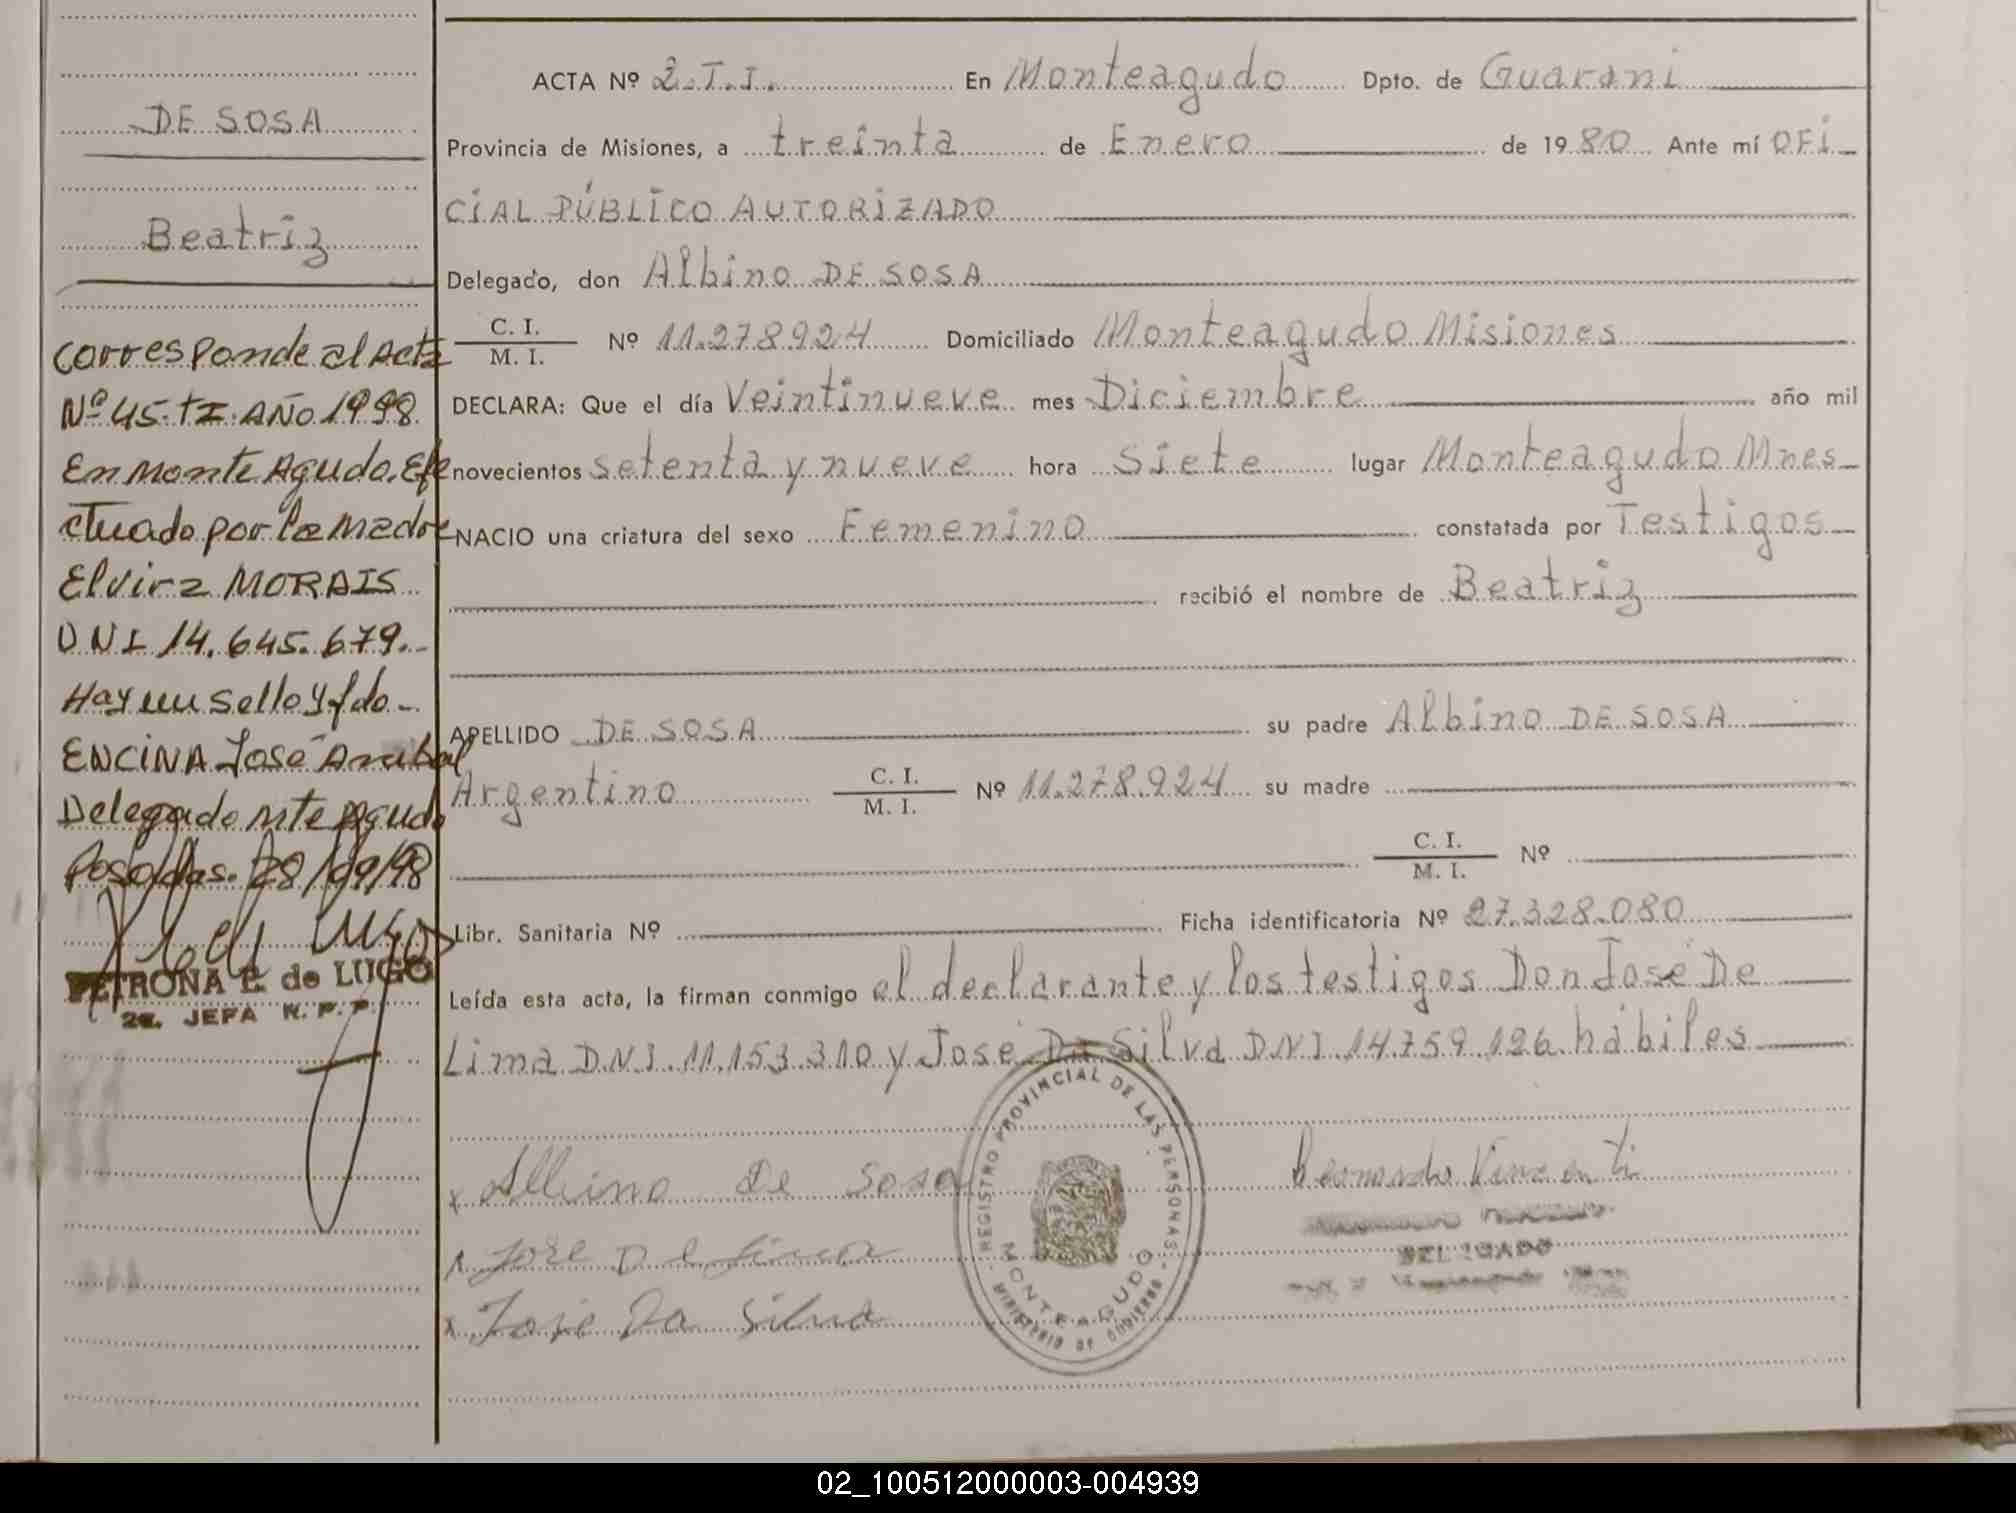 DE SOSA
Beatriz
Corresponde al Acta
Nº 45. TI. AÑO 1998.
En Monte Agudo. Efe
ctuado por la Madre
Elvira MORAIS
DNI 14.645.679.-
Hay un sello y fdo.-
ENCINA José Anibal
Delegado Mte Agudo
Posadas. 28/09/98
PETRONA E. de LUGO
2a. JEFA R. P. P.
ACTA Nº 2.T.I. En Monteagudo Dpto. de Guarani
Provincia de Misiones, a treinta de Enero de 1980 Ante mí OFi
CiAL PÚBLICO AUTORIZADO
Delegado, don Albino DE SOSA
C. I.
M. I. Nº 11.278924 Domiciliado Monteagudo Misiones
DECLARA: Que el día Veintinueve mes Diciembre año mil
novecientos setenta y nueve hora Siete lugar Monteagudo Mnes
NACIO una criatura del sexo Femenino constatada por Testigos
recibió el nombre de Beatriz
APELLIDO DE SOSA su padre Albino DE SOSA
Argentino C. I.
M. I. Nº 11.278.924 su madre
C. I.
M. I. Nº
Libr. Sanitaria Nº Ficha identificatoria Nº 27.328.080
Leída esta acta, la firman conmigo el declarante y los testigos Don José De
Lima DNI. 11.153.310 y José Da Silva DNI 14.759.126 hábiles
REGISTRO PROVINCIAL DE LAS PERSONAS
MONTEAGUDO
MINISTERIO DE GOBIERNO
x Albino de Sosa
x Jose De Lima
x Jose Da Silva
DELEGADO
02_100512000003-004939